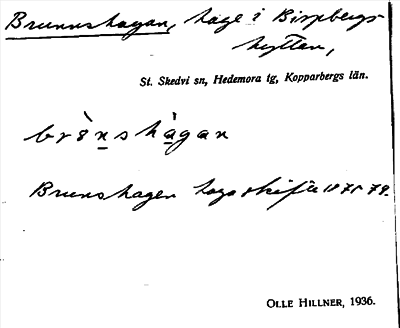 Brunnshagan, hage i Bispbergs-
hyttan,
St. Skedvi sn, Hedemora tg, Kopparbergs län.
brònshàgan
Brunshagen laga skifte 1875-79.
OLLE HILLNER, 1936.